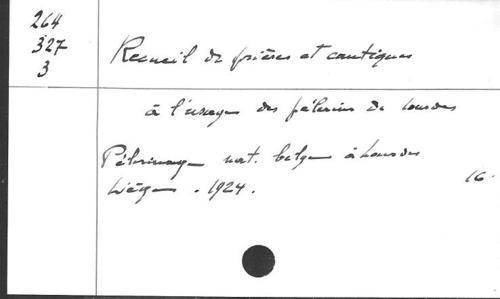 264
327
3
Recueil de prières et cantiques
à l'usage des pélerins de Lourdes
Pélerinage nat. belge à Lourdes
Liège . 1924 .
16.